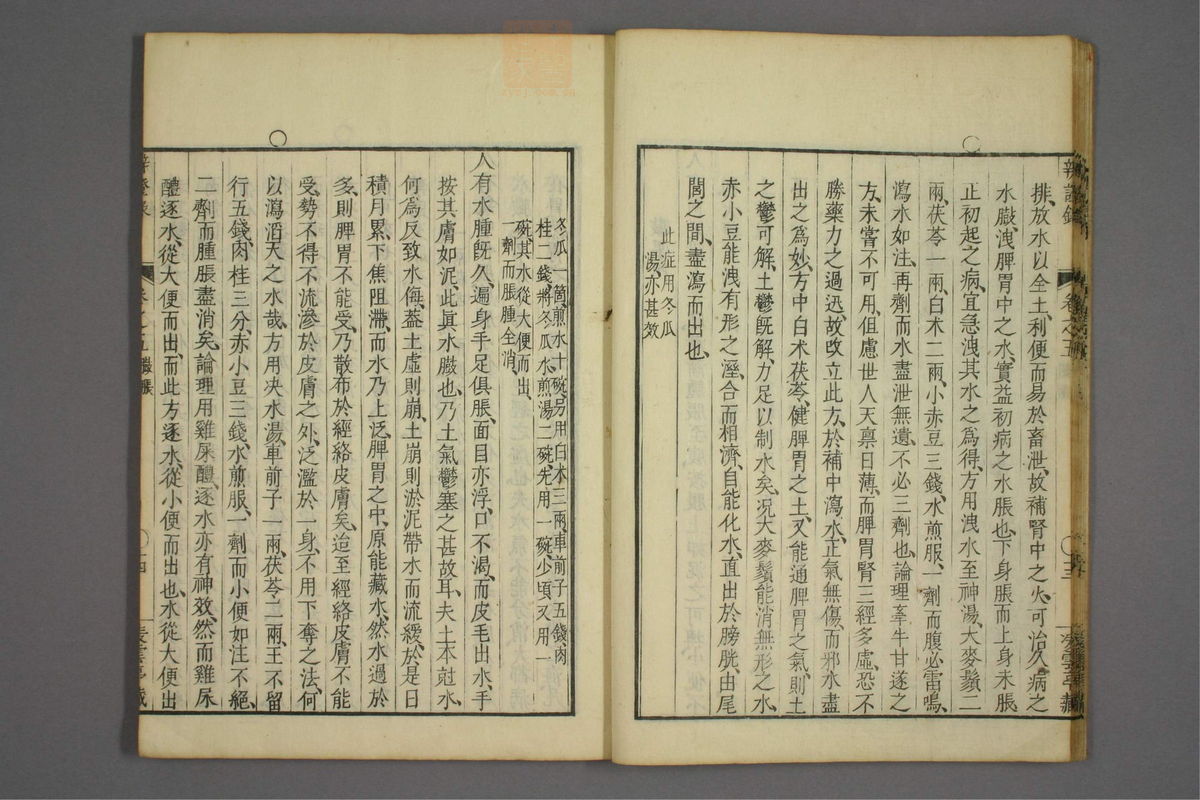 辨證錄
卷之五
十三
排、放水以全土、利便而易於畜泄、故補腎中之火、可治久病之
水臌、洩脾胃中之水、實益初病之水脹也、下身脹而上身未脹
正初起之病、宜急洩其水之爲得、方用洩水至神湯、大麥鬚二
兩、茯苓一兩、白朮二兩、小赤豆三錢、水煎服、一劑而腹必雷鳴、
瀉水如注、再劑而水盡泄無遺、不必三劑也、論理牽牛甘遂之
方、未嘗不可用、但慮世人天禀日薄、而脾胃腎三經多虛、恐不
勝藥力之過迅、故改立此方、於補中瀉水、正氣無傷、而邪水盡
出之爲妙、方中白朮茯苓、健脾胃之土、又能通脾胃之氣、則土
之鬱可解、土鬱既解、力足以制水矣、况大麥鬚能消無形之水、
赤小豆能洩有形之溼、合而相濟、自能化水、直出於膀胱、由尾
閭之間、盡瀉而出也、
此症用冬瓜
湯亦甚效
冬瓜一箇、煎水十碗、另用白朮三兩、車前子五錢、肉
桂二錢、將冬瓜水煎湯二碗、先用一碗、少頃又用一
碗、其水從大便而出、
一劑而脹腫全消、
人有水腫既久、遍身手足俱脹、面目亦浮、口不渴而皮毛出水、手
按其膚如泥、此眞水臌也、乃土氣鬱塞之甚故耳、夫土本尅水、
何爲反致水侮、蓋土虛則崩、土崩則淤泥帶水而流緩、於是日
積月累、下焦阻滯、而水乃上泛脾胃之中、原能藏水、然水過於
多、則脾胃不能受、乃散布於經絡皮膚矣、迨至經絡皮膚不能
受、勢不得不流滲於皮膚之外、泛濫於一身、不用下奪之法、何
以瀉滔天之水哉、方用决水湯、車前子一兩、茯苓二兩、王不留
行五錢、肉桂三分、赤小豆三錢、水煎服、一劑而小便如注不絕、
二劑而腫脹盡消矣、論理用雞屎醴、逐水亦有神效、然而雞屎
醴逐水、從大便而出、而此方逐水、從小便而出也、水從大便出
卷之五
十四